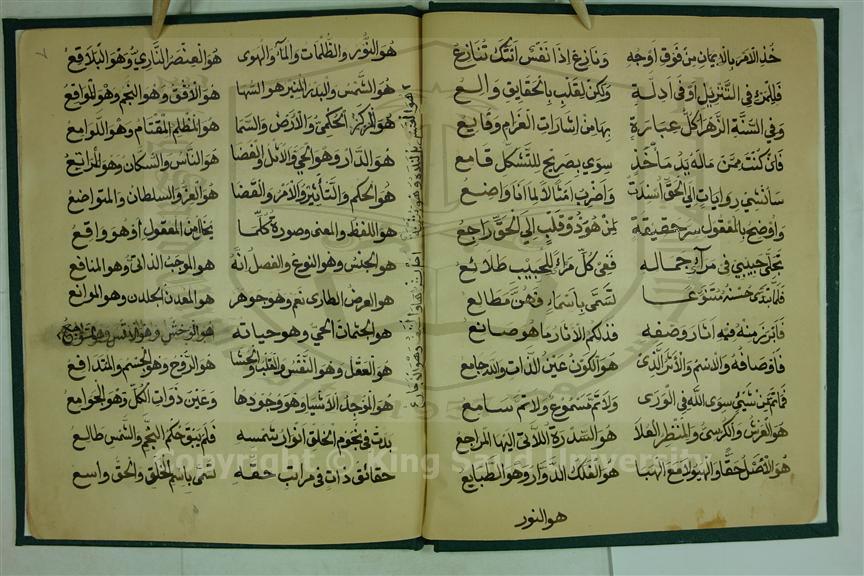 خذ الامر بالايمان من فوق اوجه ونازع اذا نفس اتتك تنازع
فللمرء في التنزيل اوفى ادلة ولكن لقلب بالحقايق والع
وفي السنة الزهرا كل عبارة بها من اشارات الغرام وقايع
فان كنت ممن ماله يد مأخذ سوى بصريح للتشكل قامع
سأنشي روايات الى الحق اسندت واضرب امثالا لما انا واضع
واوضح بالمعقول سر حقيقة لمن هو ذو قلب الى الحق راجع
تجلى حبيبي في مرآئي جماله ففي كل مرأى للحبيب طلائع
فلما تبدى حسنه متنوعا تسمى باسماء فهن مطالع
فابرز منه فيه اثار وصفه فذلكم الآثار ما هو صانع
فاوصافه والاسم والاثر الذي هو الكون عين الذات والله جامع
فما ثم من شيئ سوى الله في الورى ولا ثم مسموع ولا ثم سامع
هو العرش والكرسي والمنظر العلا هو السدرة اللاتي اليها المراجع
هو الاصل حقا والهيولا مع الهبا هو الفلك الدوار وهو الطبايع
هو النور
هو النور والظلمات والماء والهوى هو العنصر الناري وهو البلاقع
هو الشمس والبدر المنير هو السها هو الافق وهو النجم وهو المواقع
هو المركز الحكمي والارض والسما هو المظلم المقتام وهو اللوامع
هو الدار وهو الحي والاثل والفضا هو الناس والسكان وهو المراتع
هو الحكم والتأثير والامر والقضا هو العز والسلطان والمتواضع
هو اللفظ والمعنى وصورة كلما يخال من المعقول او هو واقع
هو الجنس وهو النوع والفصل انه هو الموجب الذاتي وهو المنافع
هو العرض الطارى نعم وهو جوهر هو المعدن الجلدن وهو الموانع
هو الجثمان الحي وهو حياته هو الوحش وهو الانس وهو
هو العقل وهو النفس والقلب والحشا هو الروح وهو الجسم والمتدافع
هو الموجد الاشيا وهو وجودها وعين ذوات الكل وهو الجوامع
بدت في نجوم الخلق انوار شمسه فلم يبق حكم النجم والشمس طالع
حقائق ذات في مراتب حقه تسمى باسم الخلق والحق واسع
Copyright © King Saud University